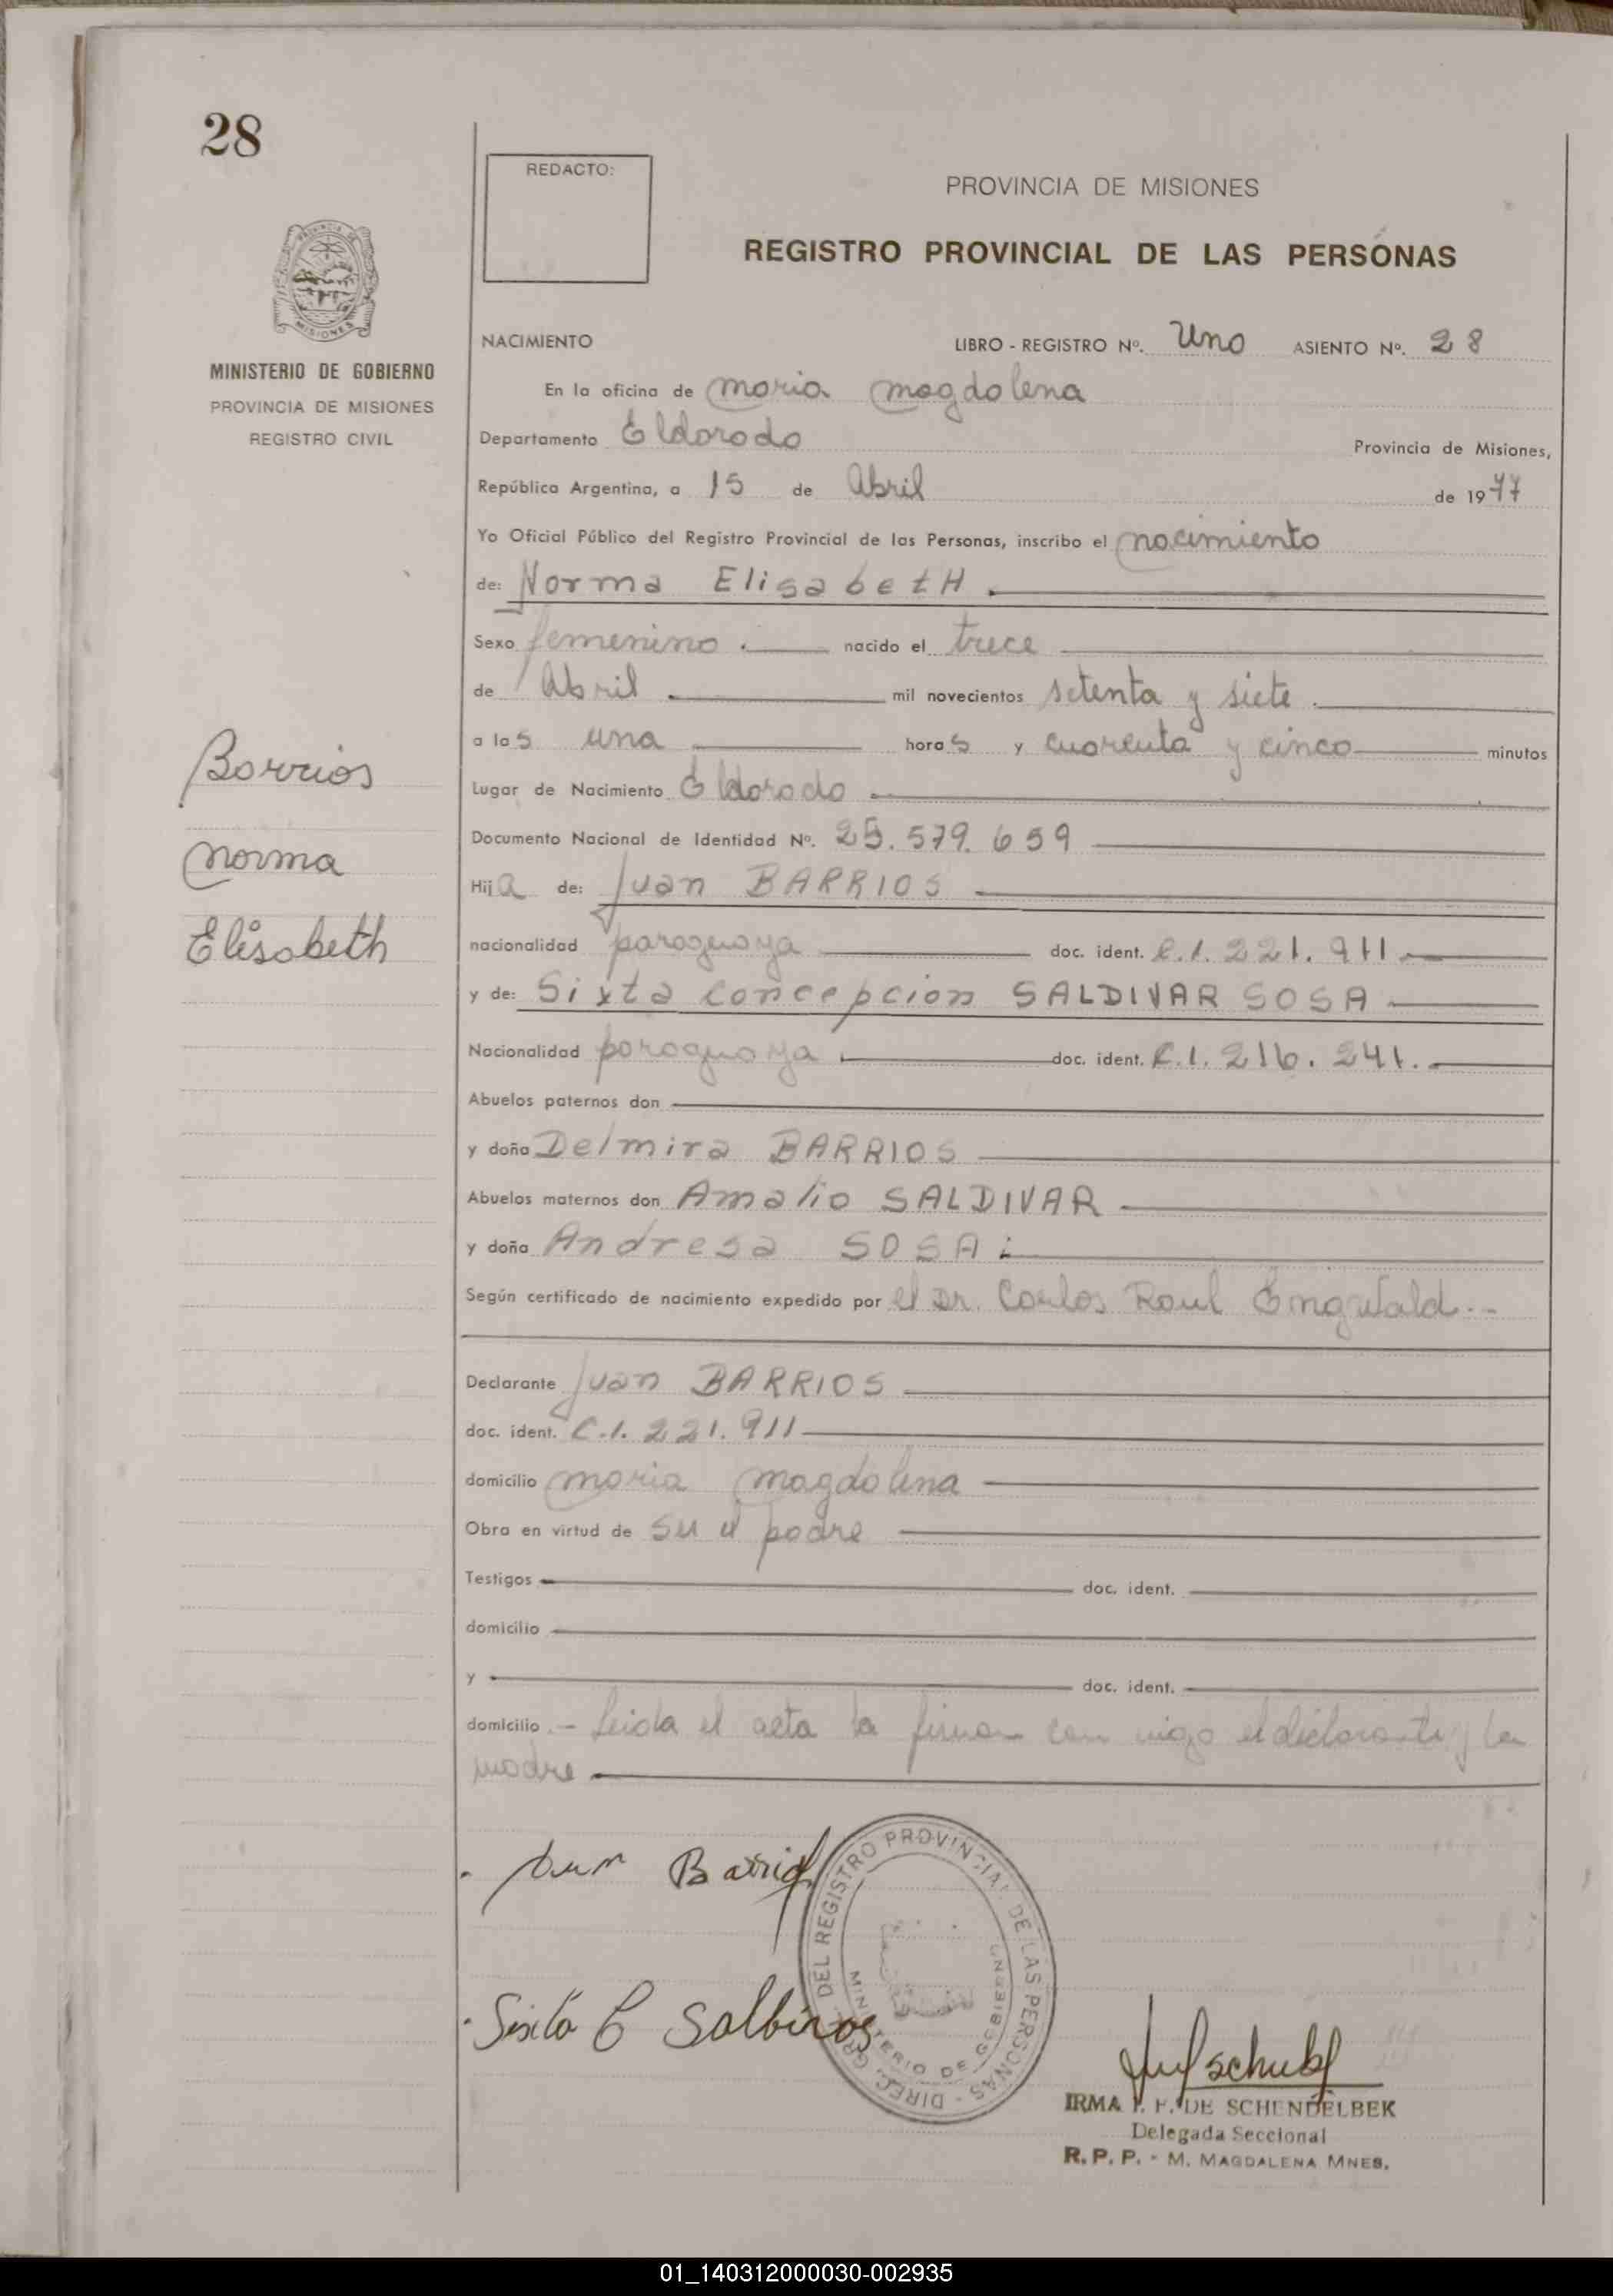 28
REDACTO:
PROVINCIA DE MISIONES
REGISTRO PROVINCIAL DE LAS PERSONAS
MISIONES
MINISTERIO DE GOBIERNO
PROVINCIA DE MISIONES
REGISTRO CIVIL
NACIMIENTO LIBRO - REGISTRO Nº. Uno ASIENTO Nº. 28
En la oficina de Maria Magdalena
Departamento Eldorado Provincia de Misiones,
República Argentina, a 15 de Abril de 1977
Yo Oficial Público del Registro Provincial de las Personas, inscribo el nacimiento
de: Norma ElisabetH.
Sexo femenino. nacido el trece
de Abril. mil novecientos setenta y siete.
a las una horas y cuarenta y cinco minutos
Lugar de Nacimiento Eldorado.
Documento Nacional de Identidad Nº. 25.579.659
Hija de: Juan BARRIOS
nacionalidad paraguaya doc. ident. C.I. 221.911
y de: Sixta Concepcion SALDIVAR SOSA
Nacionalidad paraguaya doc. ident. C.I. 216.241.
Abuelos paternos don
y doña Delmira BARRIOS
Abuelos maternos don Amalio SALDIVAR
y doña Andresa SOSA
Según certificado de nacimiento expedido por el Dr. Carlos Raul Engwald.--
Declarante Juan BARRIOS
doc. ident. C.I. 221.911
domicilio Maria Magdalena
Obra en virtud de su el padre
Testigos doc. ident.
domicilio
y doc. ident.
domicilio.- Leida el acta la firman con migo el declarante y la
madre
Barrios
Norma
Elisabeth
Juan Barrios
Sixta C Saldivar
DIREC. GRAL. DEL REGISTRO PROVINCIAL DE LAS PERSONAS -
MINISTERIO DE GOBIERNO
IRMA F. DE SCHENDELBEK
Delegada Seccional
R. P. P. - M. MAGDALENA MNES.
01_140312000030-002935